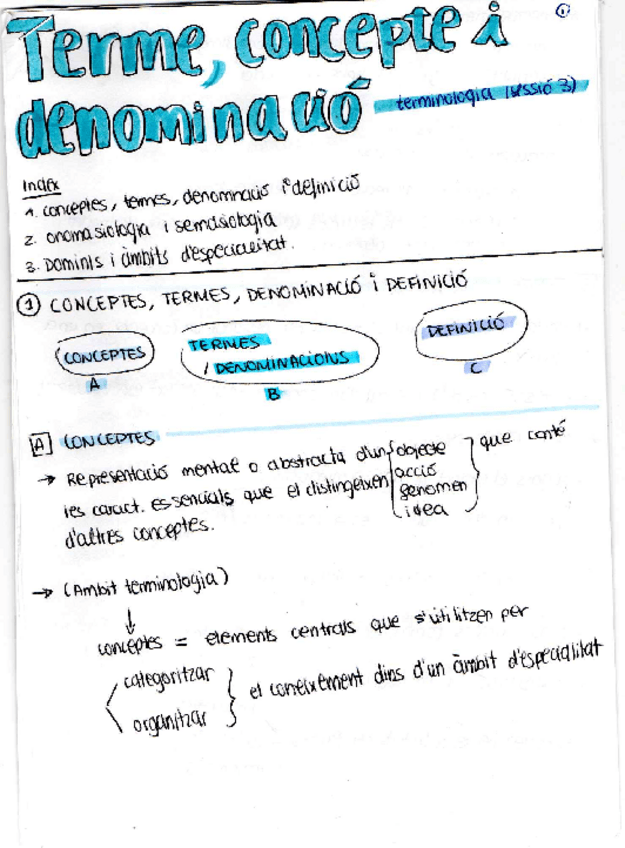 ①
Terme, concepte i
denominació terminologia (sessió 3)
Index
1. conceptes, termes, denominació i definició
2. onomasiologia i semasiologia
3. Dominis i àmbits d'especialitat.
① CONCEPTES, TERMES, DENOMINACIÓ i DEFINICIÓ
CONCEPTES
A
TERMES
/ DENOMINACIONS
B
DEFINICIÓ
C
A CONCEPTES
→ Representació mental o abstracta d'un objecte que conté
acció
fenomen
idea
les caract. essencials que el distingeixen
d'altres conceptes.
→ (Ambit terminologia)
↓
conceptes = elements centrals que s'utilitzen per
categoritzar
organitzar
el coneixement dins d'un àmbit d'especialitat